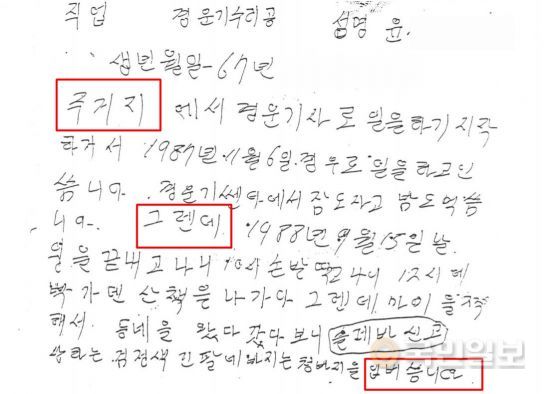 직업 경운기수리공 성명 윤.
생년월일-67년
주거지 에서 경운기사로 일을하기시작
하거서 1987년 11월 6일 경부로 일을하고인
씀니다. 경운기쎈타에서 잠도자고 밤도먹씀
니다. 그렌데 1988년 9월 15일 날
일을 끝내고 나니 10시 손발 딱고나니 12시에
박가덴 산책을 나가다 그렌데 마이
해서. 동네을 왔다 갔다 보니 슬레바 신고
상하는 검정색 긴팔 네바지는 청바지을 입버씀니다
국민일보